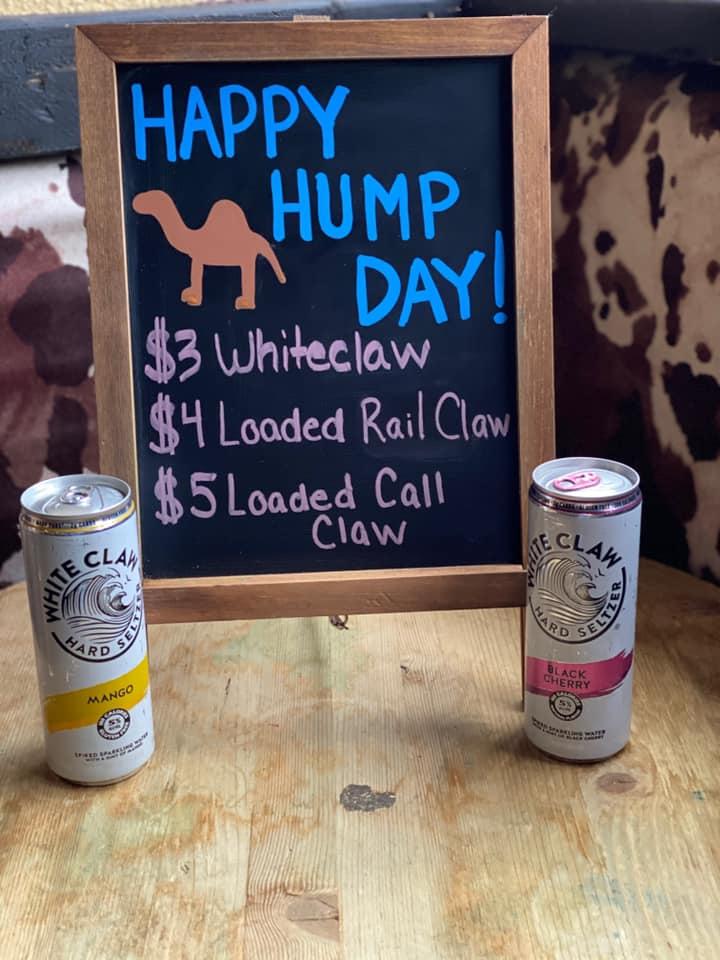 HAPPY
HUMP
DAY!
$3 Whiteclaw
$4 Loaded Rail Claw
$5 Loaded Call
Claw
WHITE CLAW
HARD SELTZER
MANGO
5%
SPIKED SPARKLING WATER
WITH A HINT OF MANGO
WHITE CLAW
HARD SELTZER
BLACK
CHERRY
5%
SPIKED SPARKLING WATER
WITH A HINT OF BLACK CHERRY